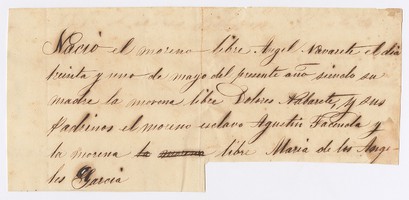 Nació el moreno libre Angel Navarete el dia
treinta y uno de mayo del presente año siendo su
madre la morena libre Dolores Nabarete, y sus
Padrinos el moreno esclavo Agustin Facunda y
la morena la morena libre Maria de los Ange-
les Garcia